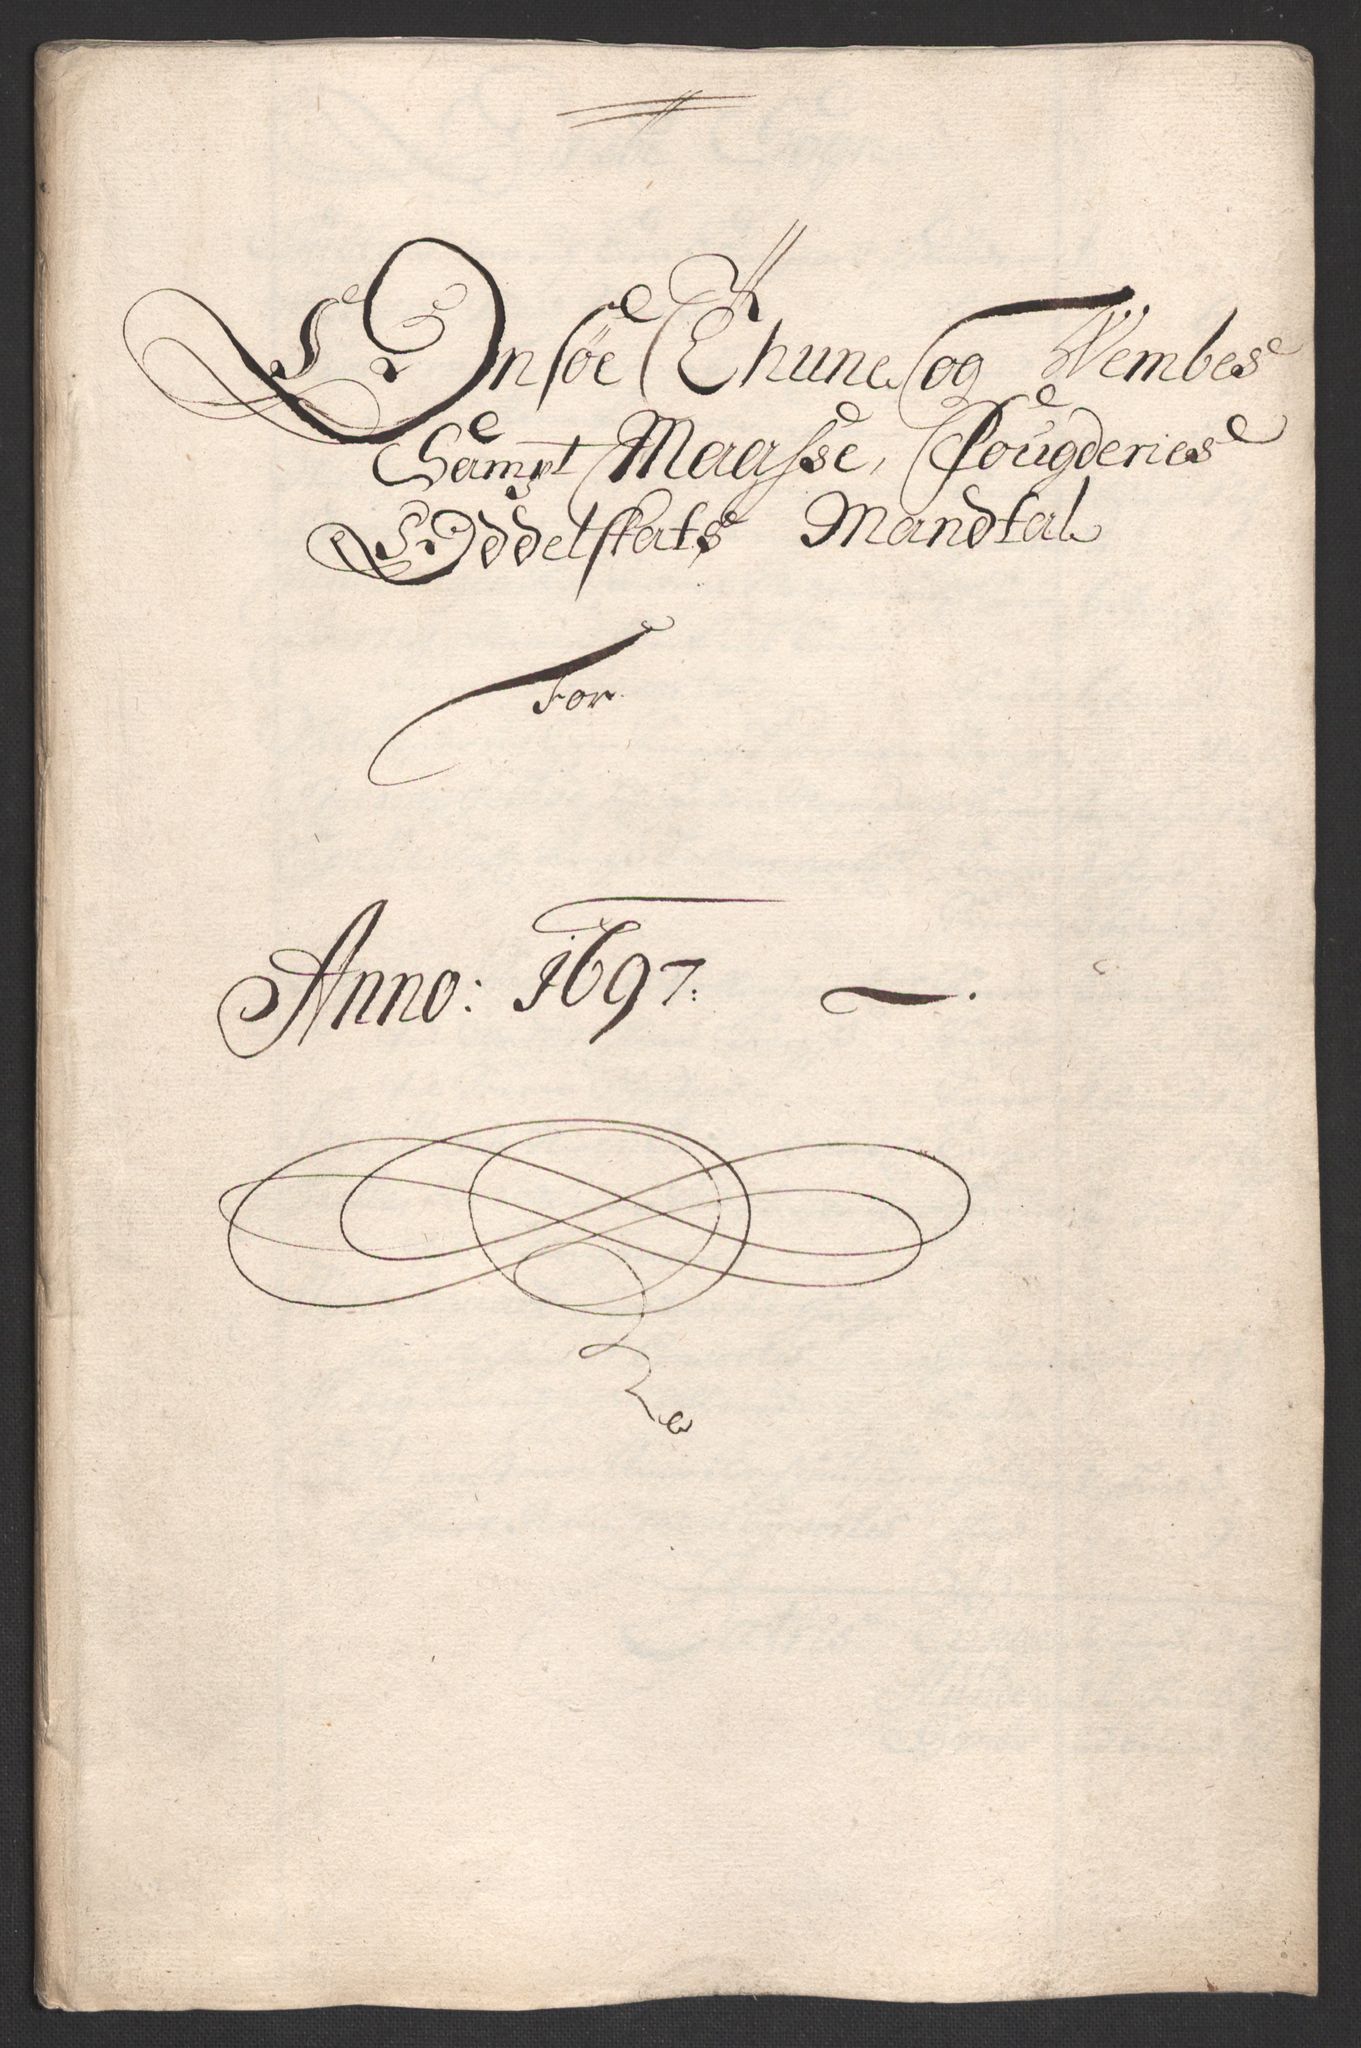 Onsöe Thune, og Wembes
Sampt Maasse, Fougderies
Oddelskats Mandtal
For
Anno: 1697: